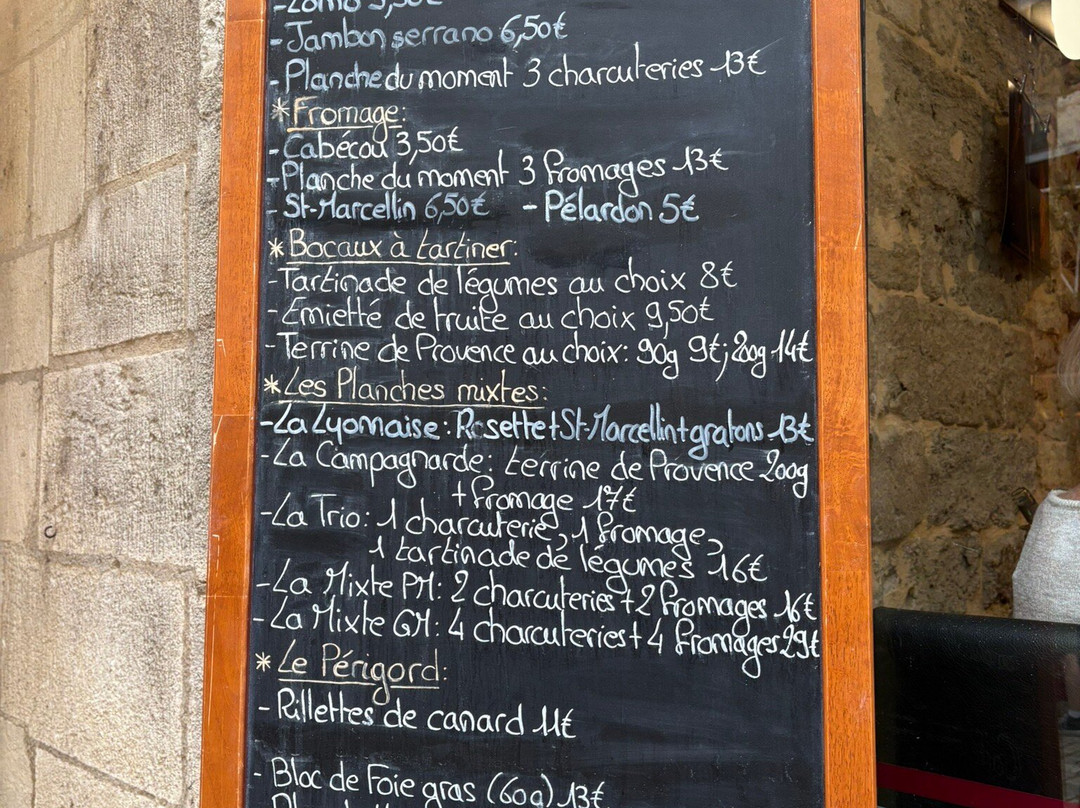 -Lomo 5,50€
-Jambon serrano 6,50€
-Planche du moment 3 charcuteries 13€
*Fromage:
-Cabécou 3,50€
-Planche du moment 3 fromages 13€
-St-Marcellin 6,50€ -Pélardon 5€
*Bocaux à tartiner:
-Tartinade de légumes au choix 8€
-Emietté de truite au choix 9,50€
-Terrine de Provence au choix: 90g 9€; 200g 14€
*Les Planches mixtes:
-La Lyonnaise: Rosette+St-Marcellin+gratons 13€
-La Campagnarde: terrine de Provence 200g
+ fromage 17€
-La Trio: 1 charcuterie, 1 fromage,
1 tartinade de légumes 16€
-La Mixte PM: 2 charcuteries+2 fromages 16€
-La Mixte GM: 4 charcuteries+4 fromages 29€
*Le Périgord:
-Rillettes de canard 11€
-Bloc de Foie gras (60g) 13€